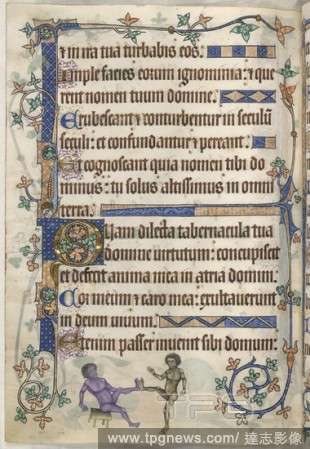 et in ira tua turbabis eos.
Imple facies eorum ignominia: et que
rent nomen tuum domine.
Erubescant et conturbentur in seculū
seculi: et confundantur et pereant.
Et cognoscant quia nomen tibi do
minus: tu solus altissimus in omni
terra.
Quam dilecta tabernacula tua
domine virtutum: concupiscit
et defecit anima mea in atria domini.
Cor meum et caro mea: exultaverunt
in deum vivum.
Etenim passer invenit sibi domum:
www.tpgnews.com/ 達志影像